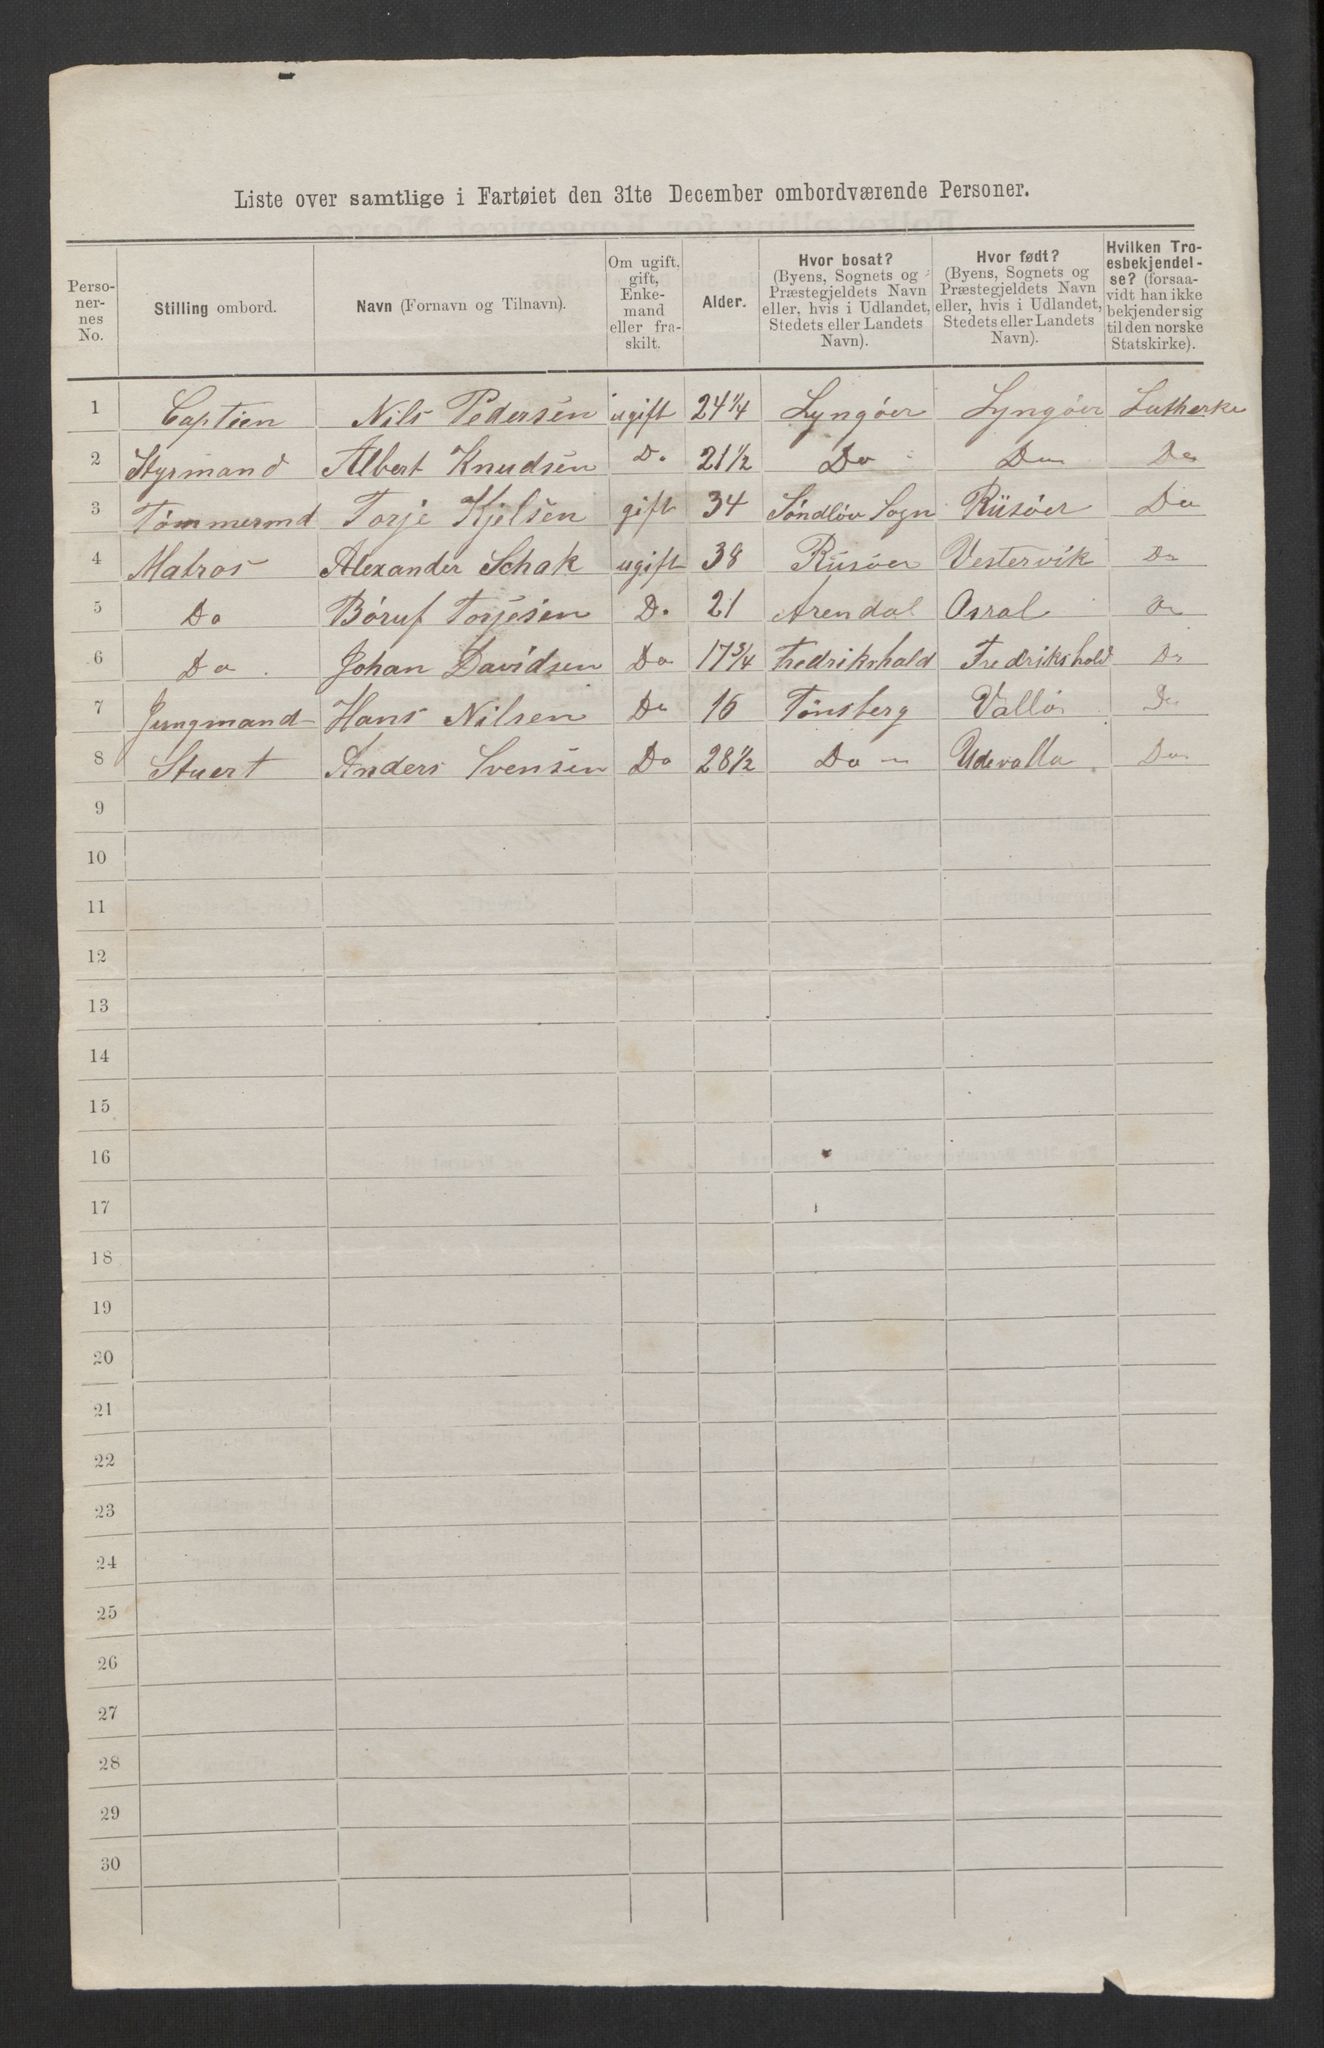 Liste over samtlige i Fartøiet den 31te December ombordværende Personer.
Perso-nernes No. | Stilling ombord. | Navn (Fornavn og Tilnavn). | Om ugift, gift, Enkemand eller fraskilt. | Alder. | Hvor bosat? (Byens, Sognets og Præstegjeldets Navn eller, hvis i Udlandet, Stedets eller Landets Navn). | Hvor født? (Byens, Sognets og Præstegjeldets Navn eller, hvis i Udlandet, Stedets eller Landets Navn). | Hvilken Troesbekjendelse? (forsaavidt han ikke bekjender sig til den norske Statskirke).
1 Captien Nils Pedersen ugift 24 1/4 Lyngöer Lyngöer Lutherke
2 Styrmand Albert Knudsen Do 21 1/2 Do Do Do
3 Tömmermd Torje Kjelsen gift 34 Söndlöv Sogn Riisöer Do
4 Matros Alexander Schak ugift 38 Riisöer Vestervik Do
5 Do Böruf Torjesen Do 21 Arendal Do
6 Do Johan Davidsen Do 17 3/4 Fredrikshald Fredrikshald Do
7 Jungmand Hans Nilsen Do 16 Tönsberg Vallö Do
8 Stuert Anders Svensen Do 28 1/2 Do Udevalla Do
9
10
11
12
13
14
15
16
17
18
19
20
21
22
23
24
25
26
27
28
29
30